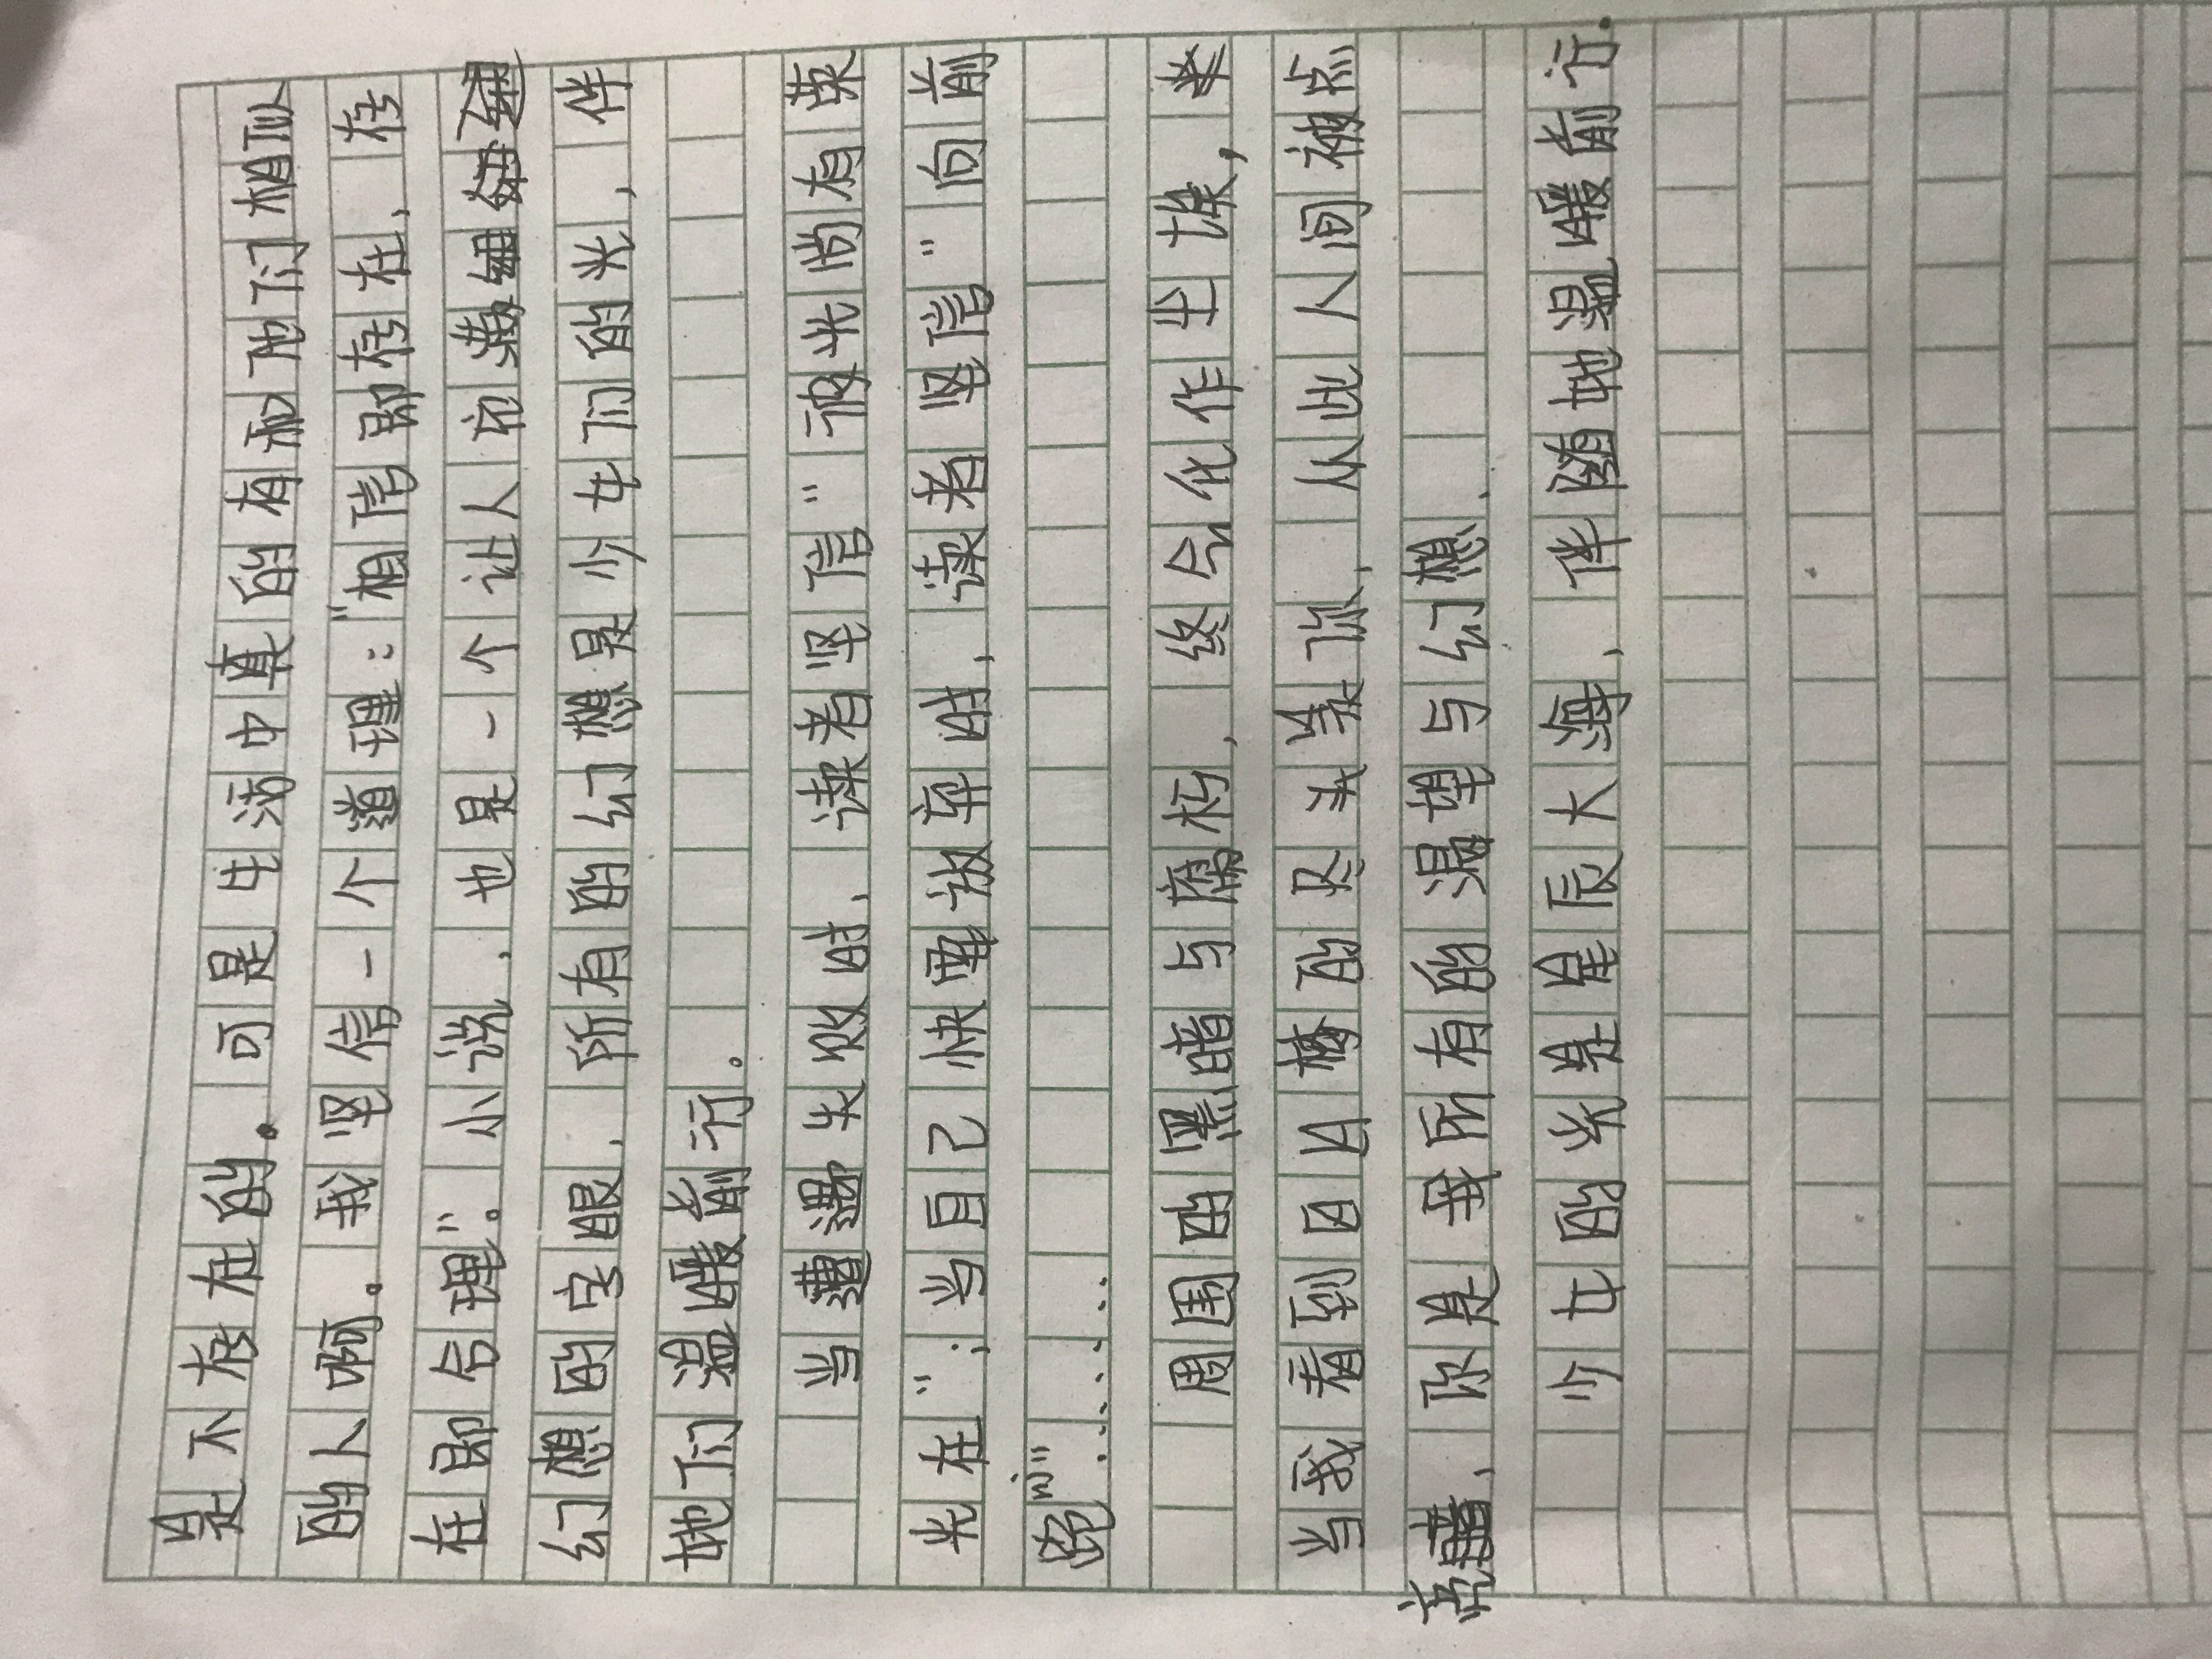 是不存在的。可是生活中真的有和她们相似
的人啊。我坚信一个道理:“相信即存在,存
在即合理”。小说,也是一个让人充满
幻想的字眼,所有的幻想是少女们的光,伴
她们温暖前行。
当遭遇失败时,读者坚信“彼光尚有荣
光在”;当自己快要放弃时,读者坚信“向前
跑”……
周围的黑暗与腐朽,终会化作尘埃,
当我看到日白梦的尽头是你,从此人间被点
亮,你是我所有的渴望与幻想.
少女的光是星辰大海,伴随她温暖前行.